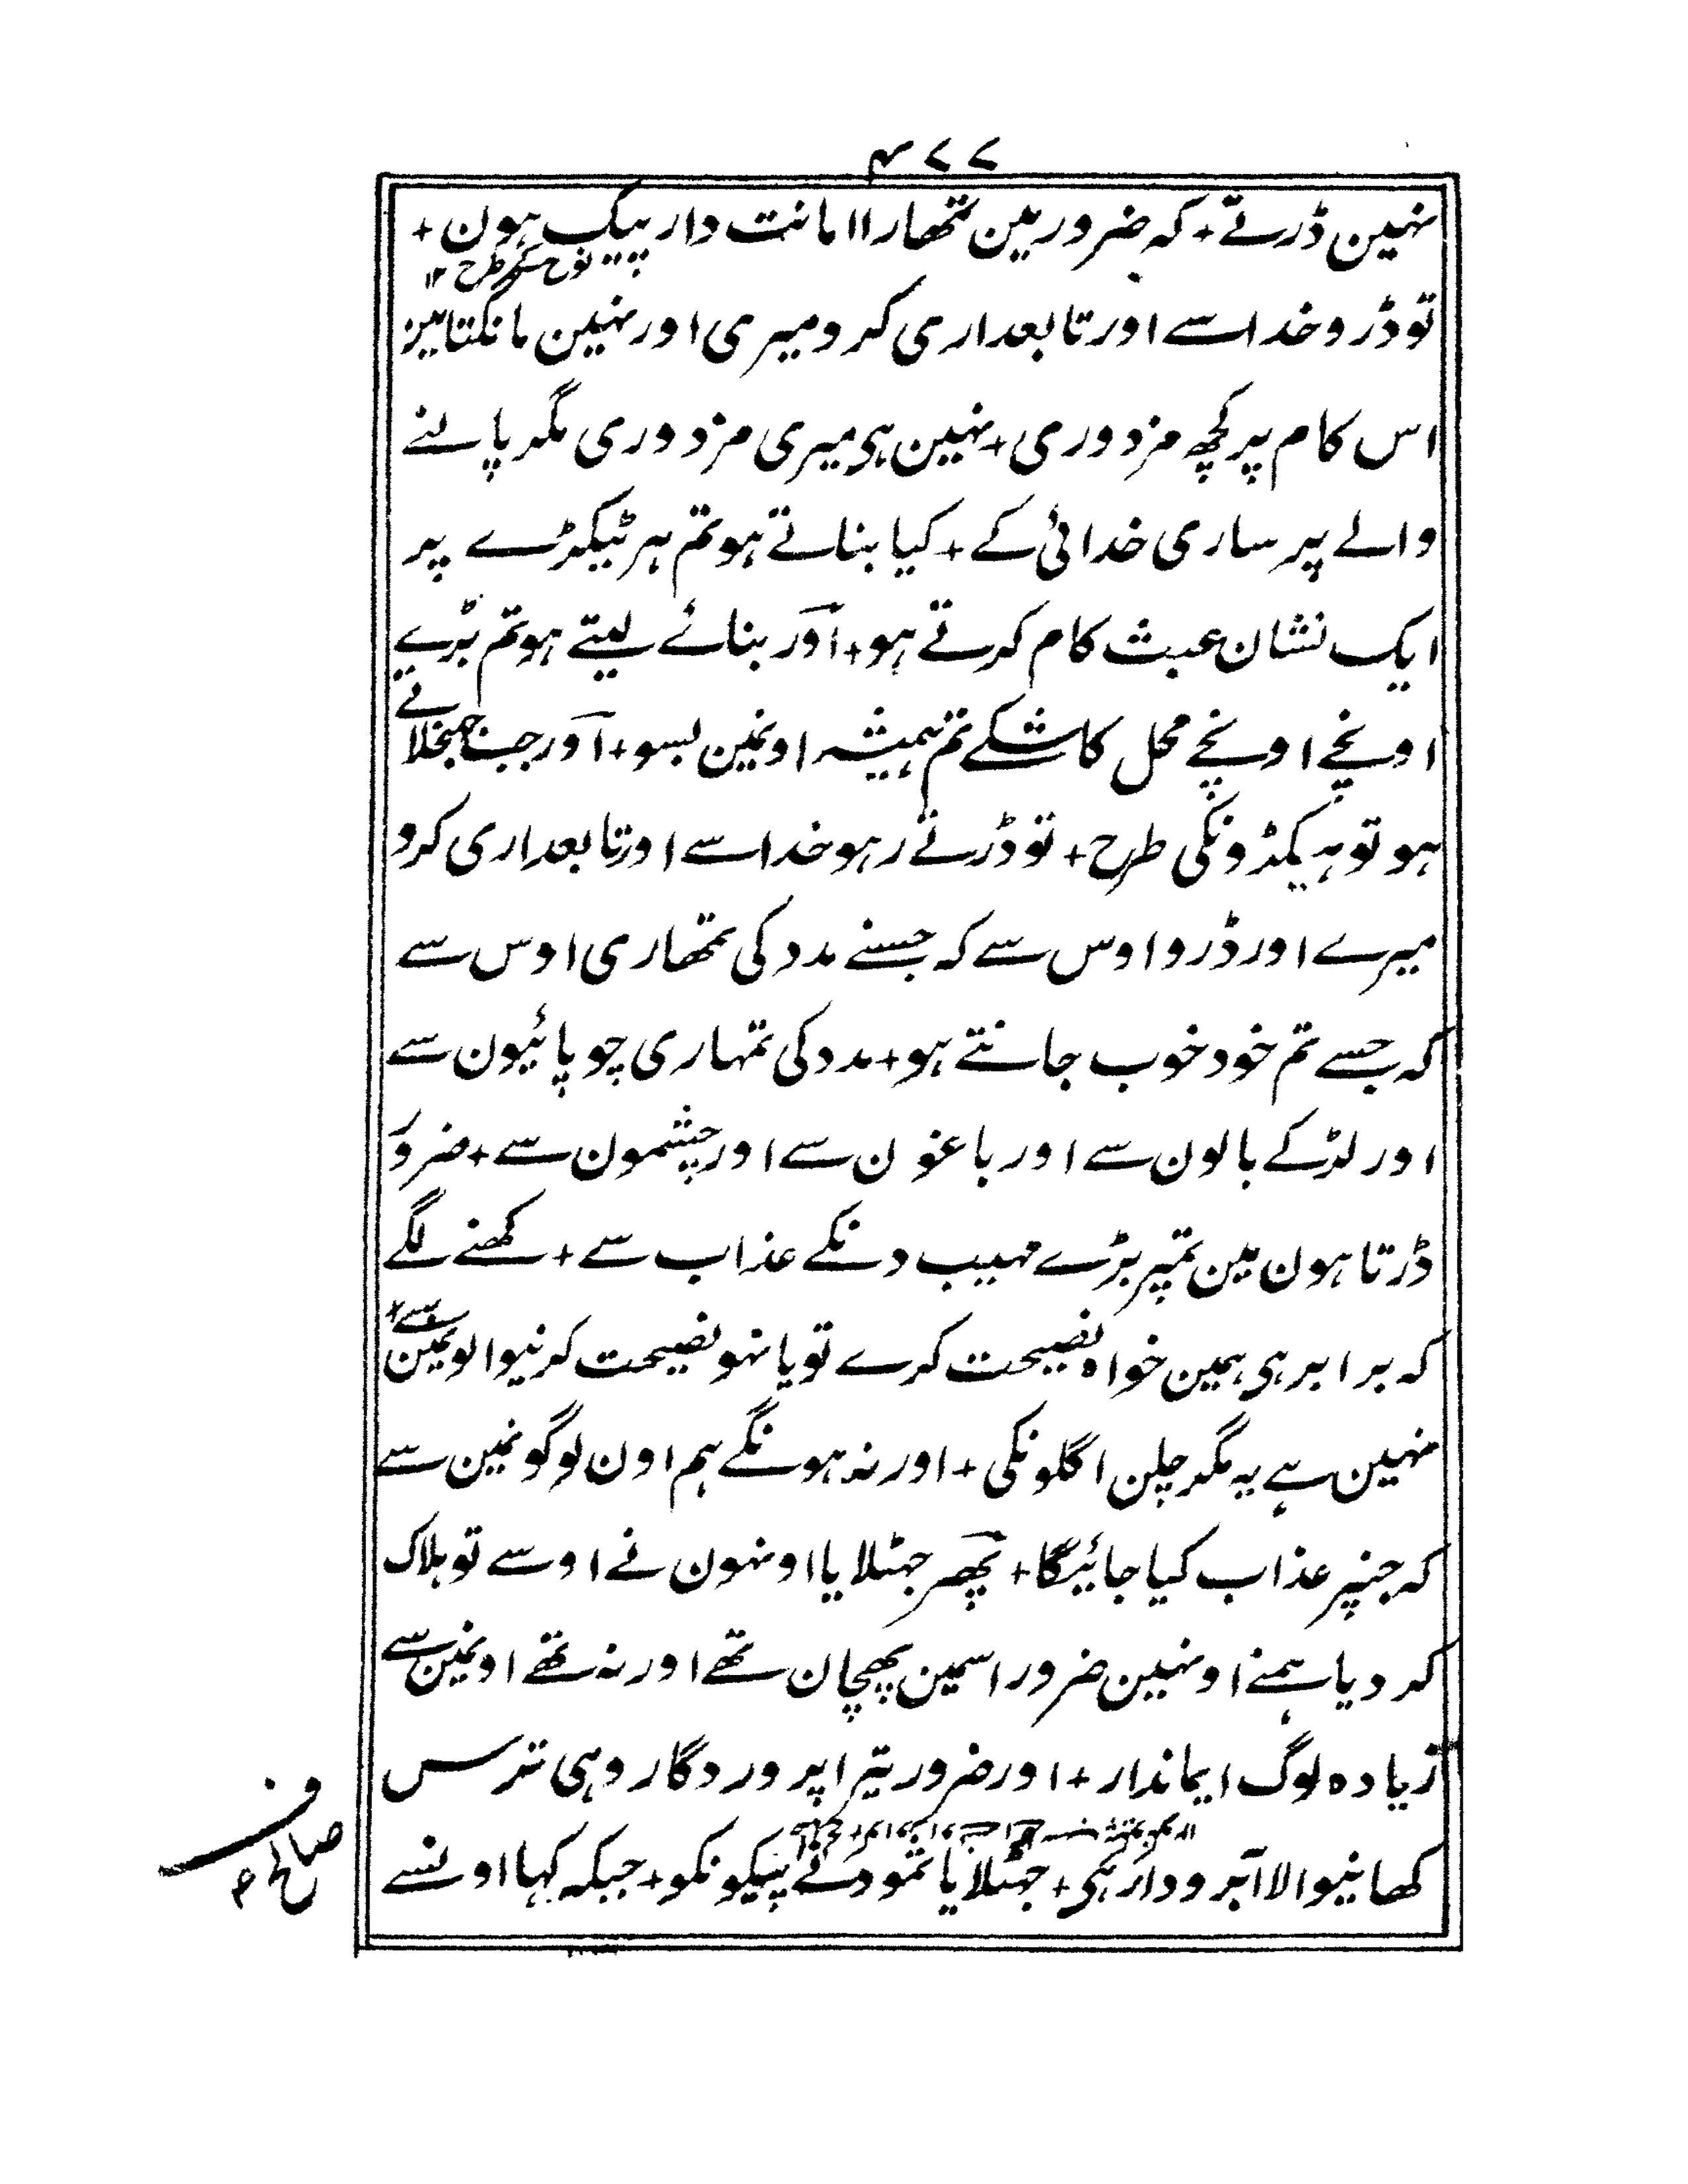 ۴۷۷
نہین ڈرتے + کہ ضرور مین تمھارا امانت دار پیک ہون +
نوح کی طرح ۱۲
تو ڈرو خدا سے اور تابعداری کرو میری اور نہین مانگتا مین
اس کام پر کچھ مزدوری + نہین ہی میری مزدوری مگر پالنے
والے پر ساری خدائی کے + کیا بناتے ہو تم ہر ٹیکڑے پر
ایک نشان عبث کام کرتے ہو + اور بنائے لیتے ہو تم بڑے
اونچے اونچے محل کاشکے تم ہمیشہ اونمین بسو + اور جب جھنجلاتے
ہو تو ہیکڑونکی طرح + تو ڈرتے رہو خدا سے اور تابعداری کرو
میرے اور ڈرو اوس سے کہ جسنے مدد کی تمھاری اوس سے
کہ جسے تم خود خوب جانتے ہو + مدد کی تمہاری چوپائیون سے
اور لڑکے بالون سے اور باغون سے اور چشمون سے + ضرور
ڈرتا ہون مین تمپر بڑے مہیب دنکے عذاب سے + کھنے لگے
کہ برابر ہی ہمین خواہ نصیحت کرے تو یا نہو نصیحت کرنیوالونمین سے +
نہین ہے یہ مگر چلن اگلونکی + اور نہ ہونگے ہم اون لوگونمین سے
کہ جنپر عذاب کیا جائیگا + پھر جہٹلایا اونہون نے اوسے تو ہلاک
کر دیا ہمنے اونہین ضرور اسمین پھچان تھے اور نہ تھے اونمین سے
زیادہ لوگ ایماندار + اور ضرور تیرا پروردگار وہی ترس
کھانیوالا آبرودار ہی + جہٹلایا ثمود نے پیکونکو + جبکہ کہا اونسے
ف
صالح ۴